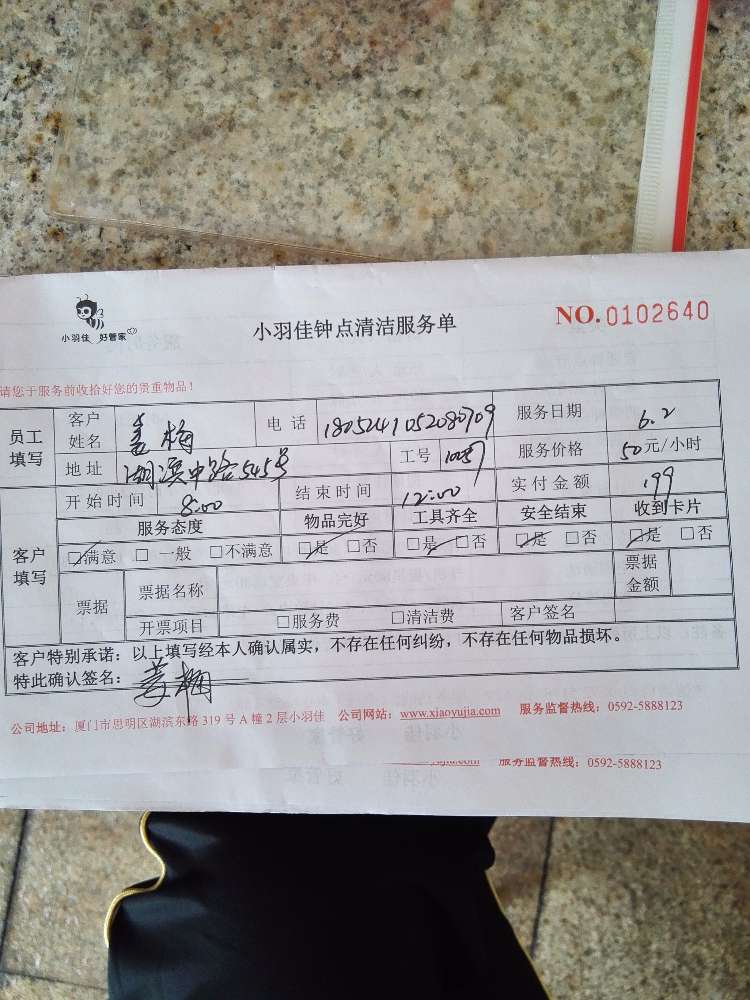 小羽佳 好管家
小羽佳钟点清洁服务单
NO.0102640
请您于服务前收拾好您的贵重物品！
员工填写 客户姓名 姜梅 电话 服务日期 6.2
地址 湖滨中路545号 工号 服务价格 50元/小时
客户填写 开始时间 8:00 结束时间 12:00 实付金额 199
服务态度 物品完好 工具齐全 安全结束 收到卡片
□满意 □一般 □不满意 □是 □否 □是 □否 □是 □否 □是 □否
票据 票据名称 票据金额
开票项目 □服务费 □清洁费 客户签名
客户特别承诺：以上填写经本人确认属实，不存在任何纠纷，不存在任何物品损坏。
特此确认签名：姜梅
公司地址：厦门市思明区湖滨东路319号A幢2层小羽佳 公司网站：www.xiaoyujia.com 服务监督热线：0592-5888123
服务监督热线：0592-5888123